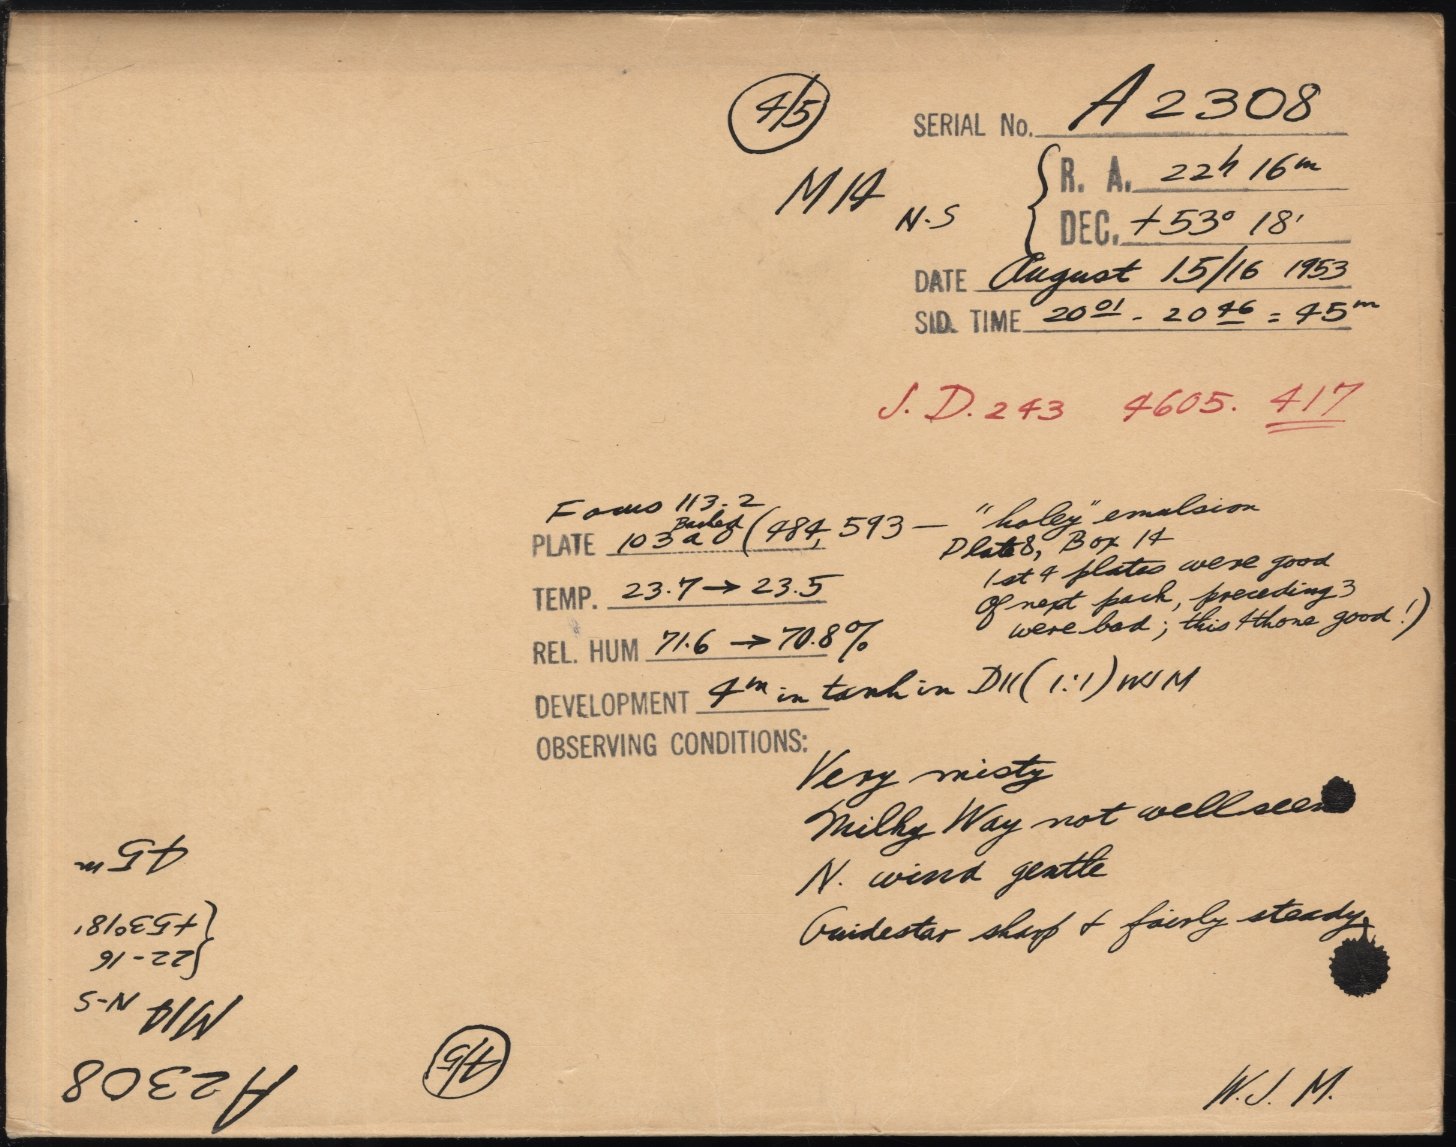 4/5
SERIAL No. A 2308
M14 N-S
R. A. 22h 16m
DEC. +53° 18'
DATE August 15/16 1953
SID. TIME 20 01 - 20 46 = 45m
J. D. 243 4605. 417
Focus 113.2
Backed
PLATE 103aO (484,593 — "holey" emulsion
Plate 8, Box 14
1st 4 plates were good
TEMP. 23.7 → 23.5
Of next pack, preceding 3
were bad; this 4th one good!)
REL. HUM 71.6 → 70.8%
DEVELOPMENT 4m in tank in D11 (1:1) WJM
OBSERVING CONDITIONS:
Very misty
Milky Way not well seen
N. wind gentle
Guidestar sharp & fairly steady.
W. J. M.
4/5
A2308
M14 N-S
22-16
+53°18'
45m